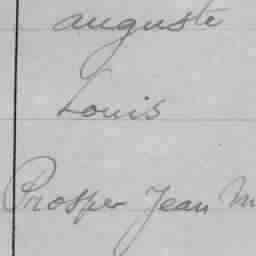 auguste
Louis
Prosper Jean M